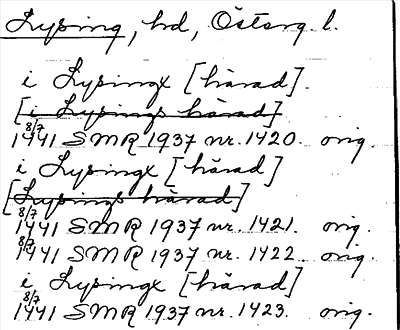 Lysing, hd, Österg. l.
i Lysingx [härad].
[i Lysings härad]
8/7 1441 SMR 1937 nr. 1420. orig.
i Lysingx [härad]
[Lysings härad]
8/7 1441 SMR 1937 nr. 1421. orig.
8/7 1441 SMR 1937 nr. 1422. orig.
i Lysingx [härad]
8/7 1441 SMR 1937 nr. 1423. orig.